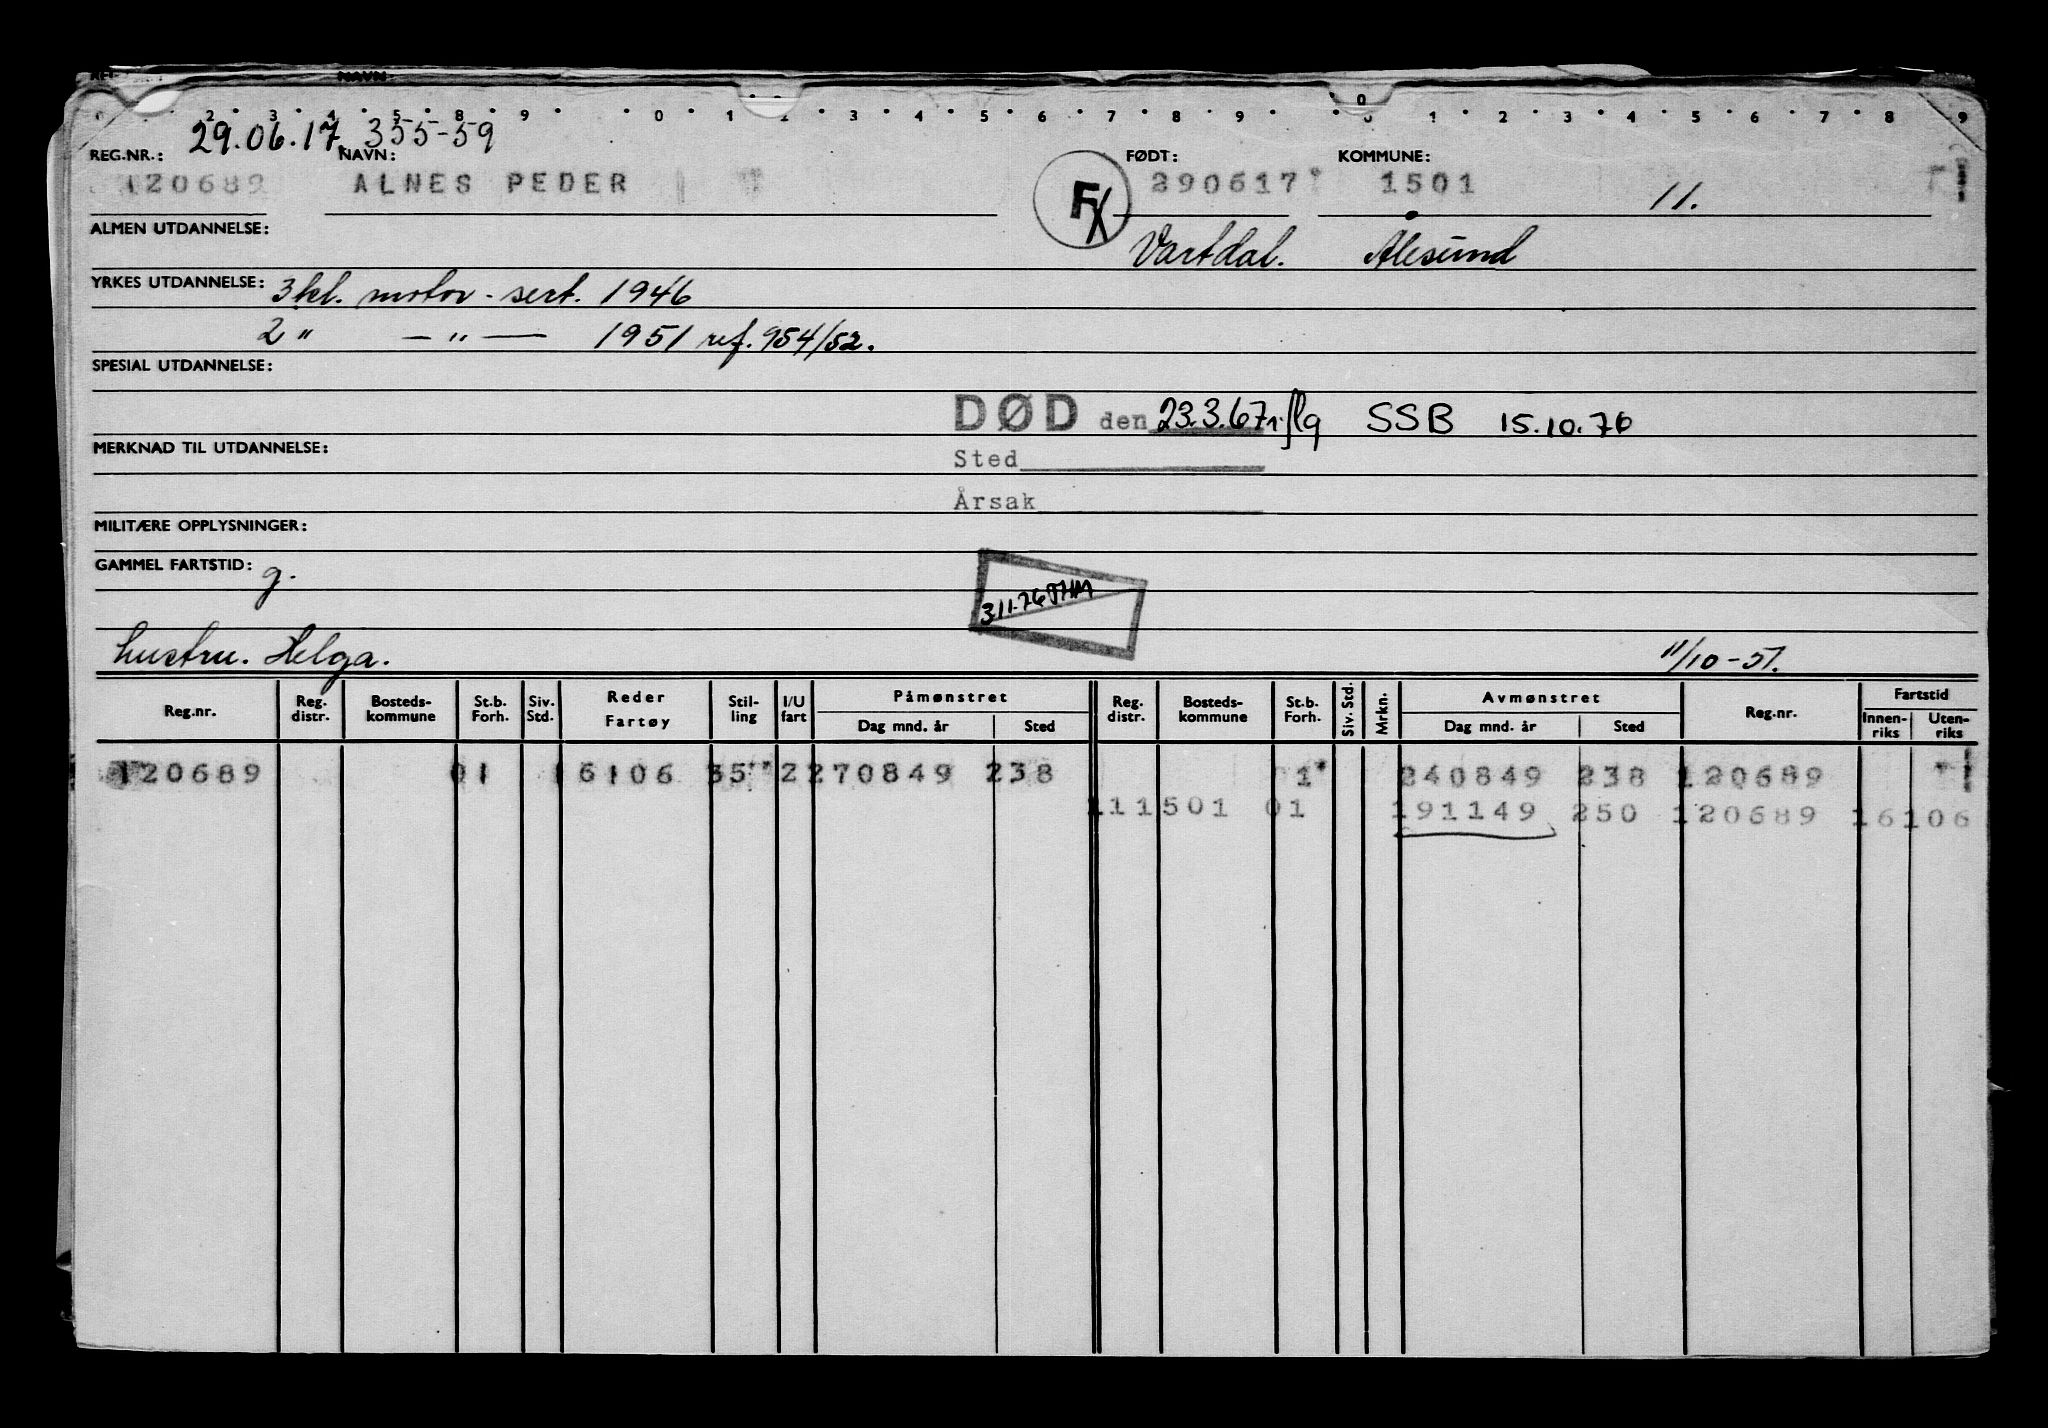 NAVN:
2 3 4 5 8 9 0 1 2 3 4 5 6 7 8 9 0 1 2 3 4 5 6 7 8 9
29.06.17. 355-59
REG.NR.: NAVN: FØDT: KOMMUNE:
120689 ALNES PEDER F 290617 1501 11.
ALMEN UTDANNELSE: Vartdal. Ålesund
YRKES UTDANNELSE: 3 kl. motor - sert. 1946
2 " — " — 1951 ref. 954/52.
SPESIAL UTDANNELSE:
DØD den 23.3.67 SSB 15.10.76
MERKNAD TIL UTDANNELSE:
Sted
Årsak
MILITÆRE OPPLYSNINGER:
GAMMEL FARTSTID: g.
3/11-76 THM
hustru. Helga. 11/10-51.
Reg.nr. Reg. distr. Bosteds-kommune St.b. Forh. Siv. Std. Reder Fartøy Stil-ling I/U fart Påmønstret Dag mnd. år Sted Reg. distr. Bosteds-kommune St.b. Forh. Siv. Std. Mrkn. Avmønstret Dag mnd. år Sted Reg.nr. Fartstid Innen-riks Uten-riks
120689 01 16106 35 2 270849 238 1* 240849 238 120689
11 1501 01 191149 250 120689 16106